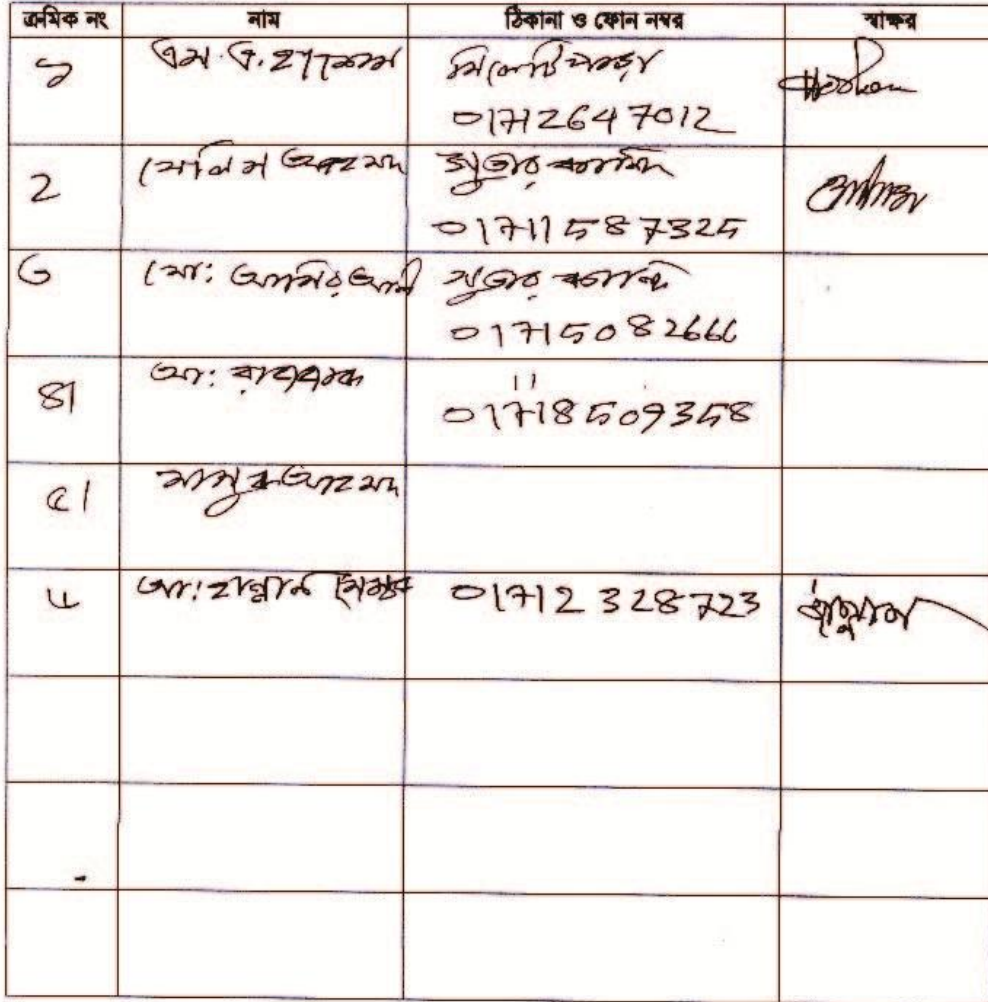 ক্রমিক নং নাম ঠিকানা ও ফোন নম্বর স্বাক্ষর
১ এম. এ. হাশেম সিলেটি পাড়া
01712647012
2 সেলিম আহমদ সুতার কান্দি
01711587325
৩ মো: আমির আলী সুতার কান্দি
01715082666
৪। আ: রাজ্জাক 11
01718509358
৫। মাসুক আহমদ
৬ আ: হান্নান 01712328723